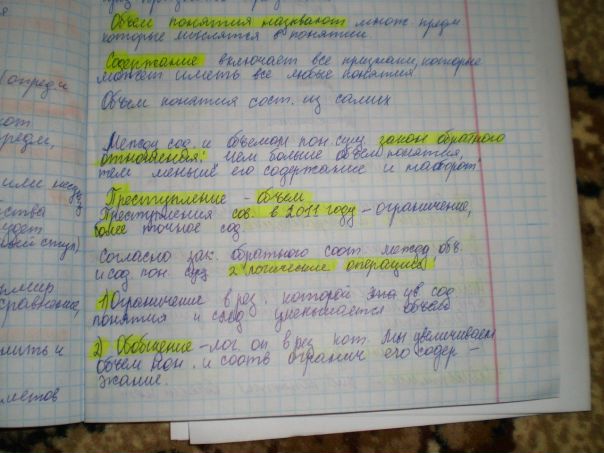 Объем понятия называют множ. предм
которые мыслятся в понятии.
Содержание включает все признаки, которые
может иметь все любые понятия
Объем понятия сост. из самих
Между сод. и объемом пон. сущ. закон обратного
отношения: чем больше объем понятия,
тем меньше его содержание и наоборот.
Преступление - объем
Преступления сов. в 2011 году - ограничение,
более точное сод.
Согласно зак. обратного соот. между об.
и сод. пон. сущ 2 логические операции
1) Ограничение в рез. которой ув сод.
понятия и след уменьшается объем
2) Обобщение - лог оп. в рез кот. мы увеличиваем
объем пон. и соотв огранич его содер -
жание.
опред и
кот
предм,
или
ства
удет
стул)
ример
сравнение,
нить и
метов